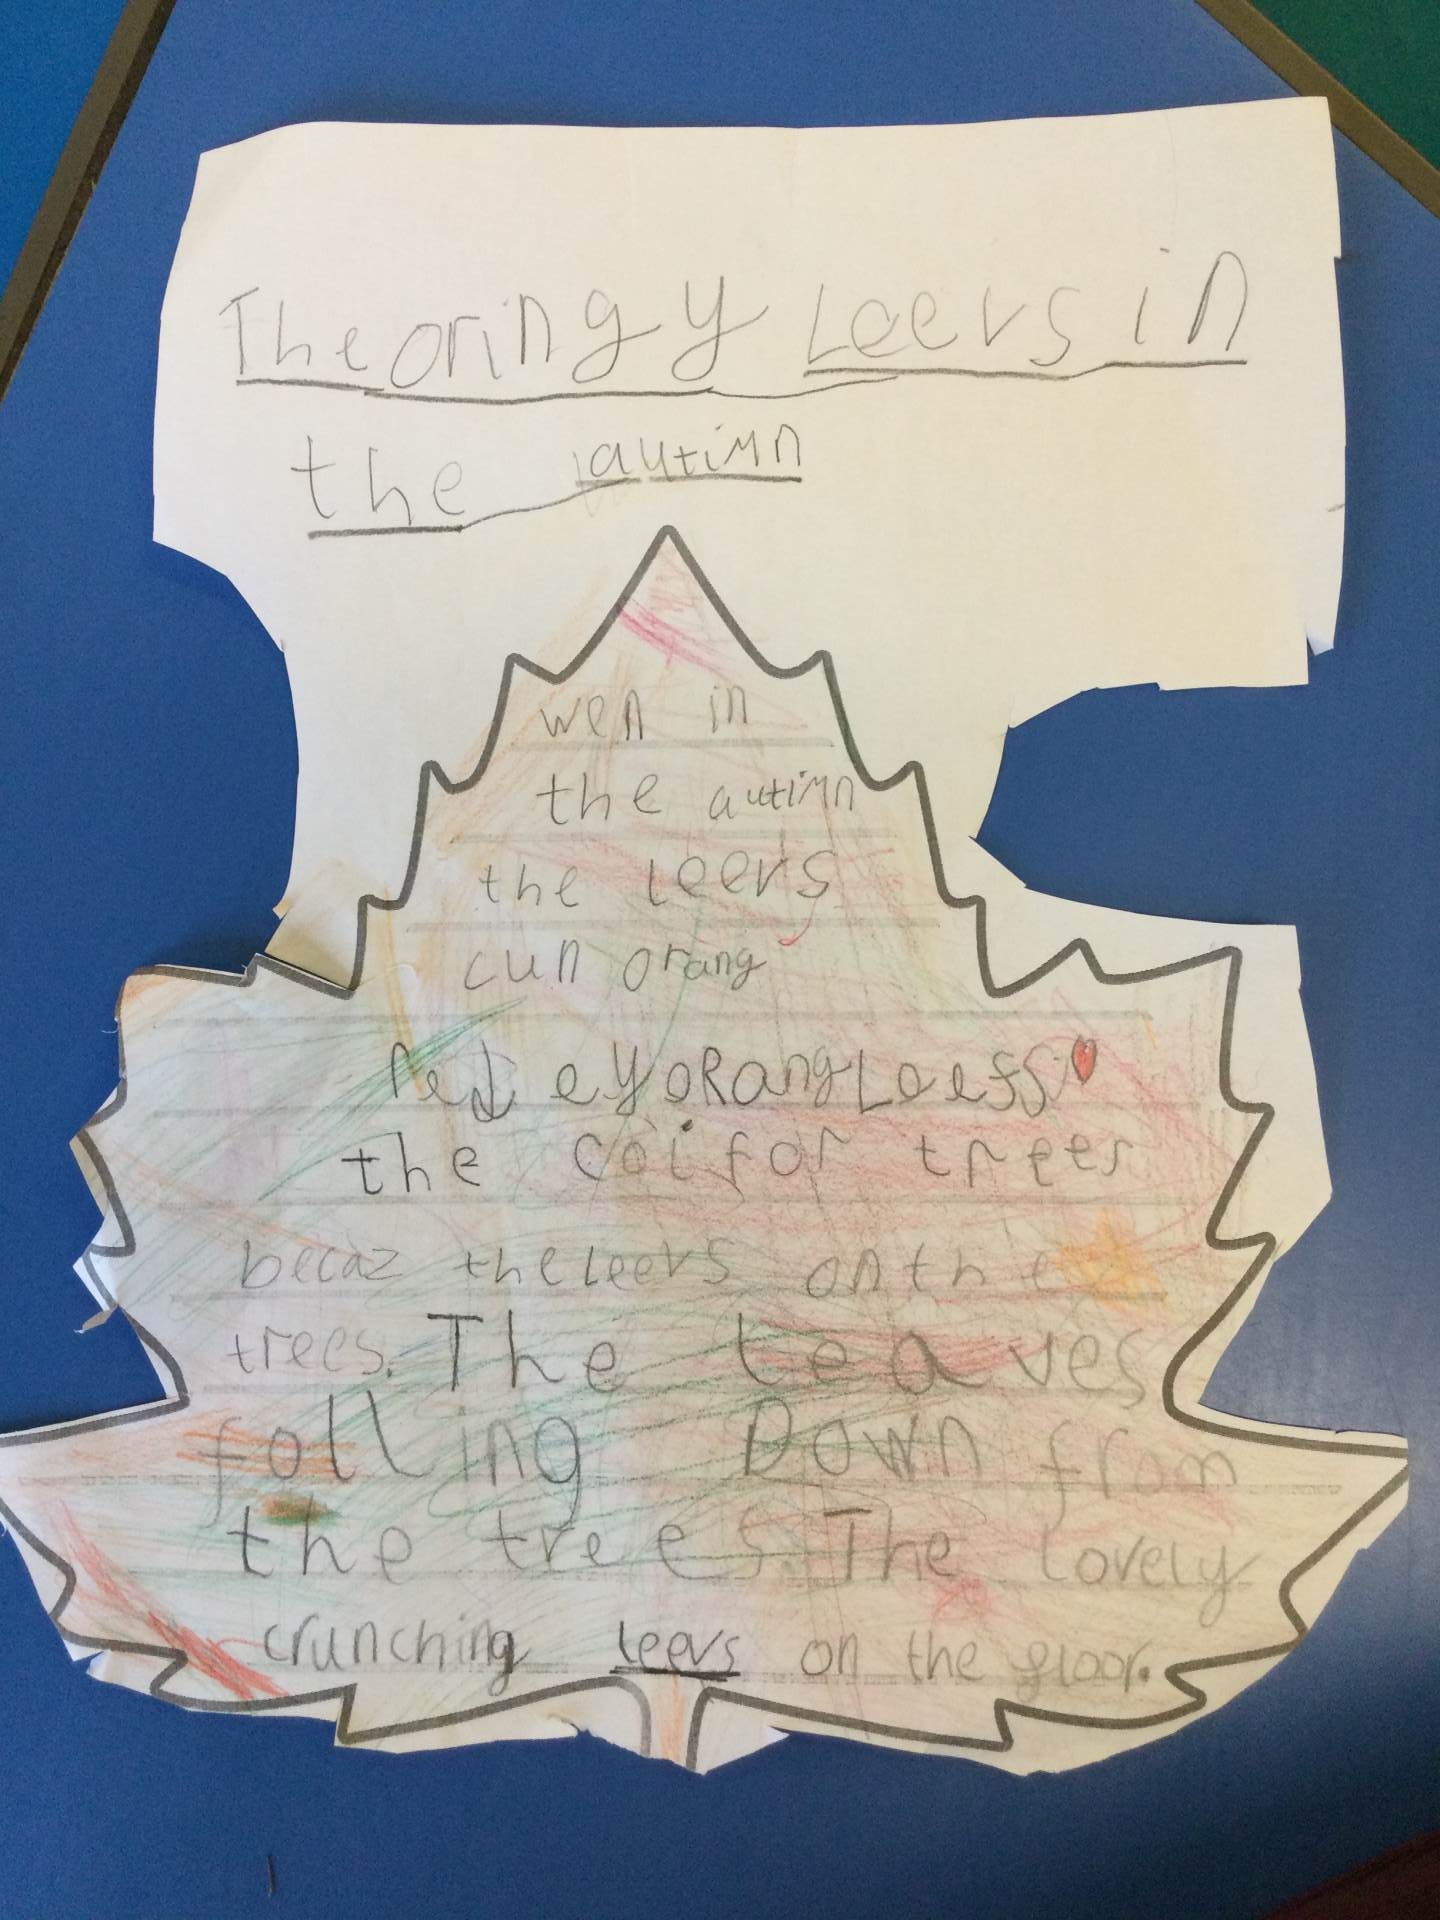 The oringy Leevs in
the autimn
wen in
the autimn
the leevs
cun orang
red eyoRang Leefs
the coifor trees
becaz the leevs on the
trees. The leaves
folling Down from
the trees. The lovely
crunching leevs on the floor.